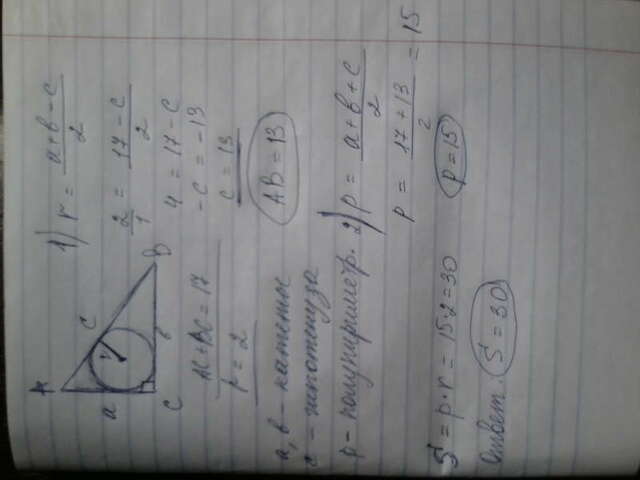 A
a
c
r
в
C
B
AC+BC=17
r=2
a, в - катеты
c - гипотенуза
p - полупериметр.
1) r = (a+в-c)/2
2/1 = (17-c)/2
4 = 17-c
-c = -13
c = 13
AB = 13
2) p = (a+в+c)/2
p = (17+13)/2 = 15
p=15
S = p·r = 15·2=30
Ответ: S=30